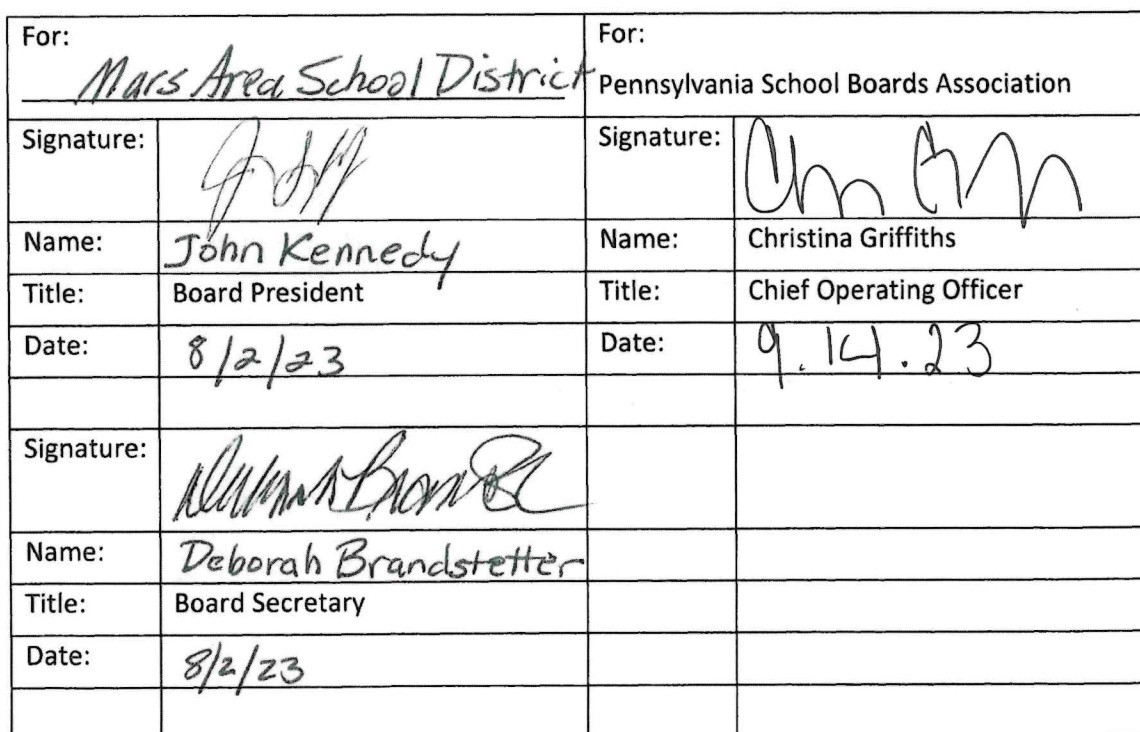 For:
Mars Area School District
For:
Pennsylvania School Boards Association
Signature:
Signature:
Name:
John Kennedy
Name:
Christina Griffiths
Title:
Board President
Title:
Chief Operating Officer
Date:
8/2/23
Date:
9.14.23
Signature:
Name:
Deborah Brandstetter
Title:
Board Secretary
Date:
8/2/23